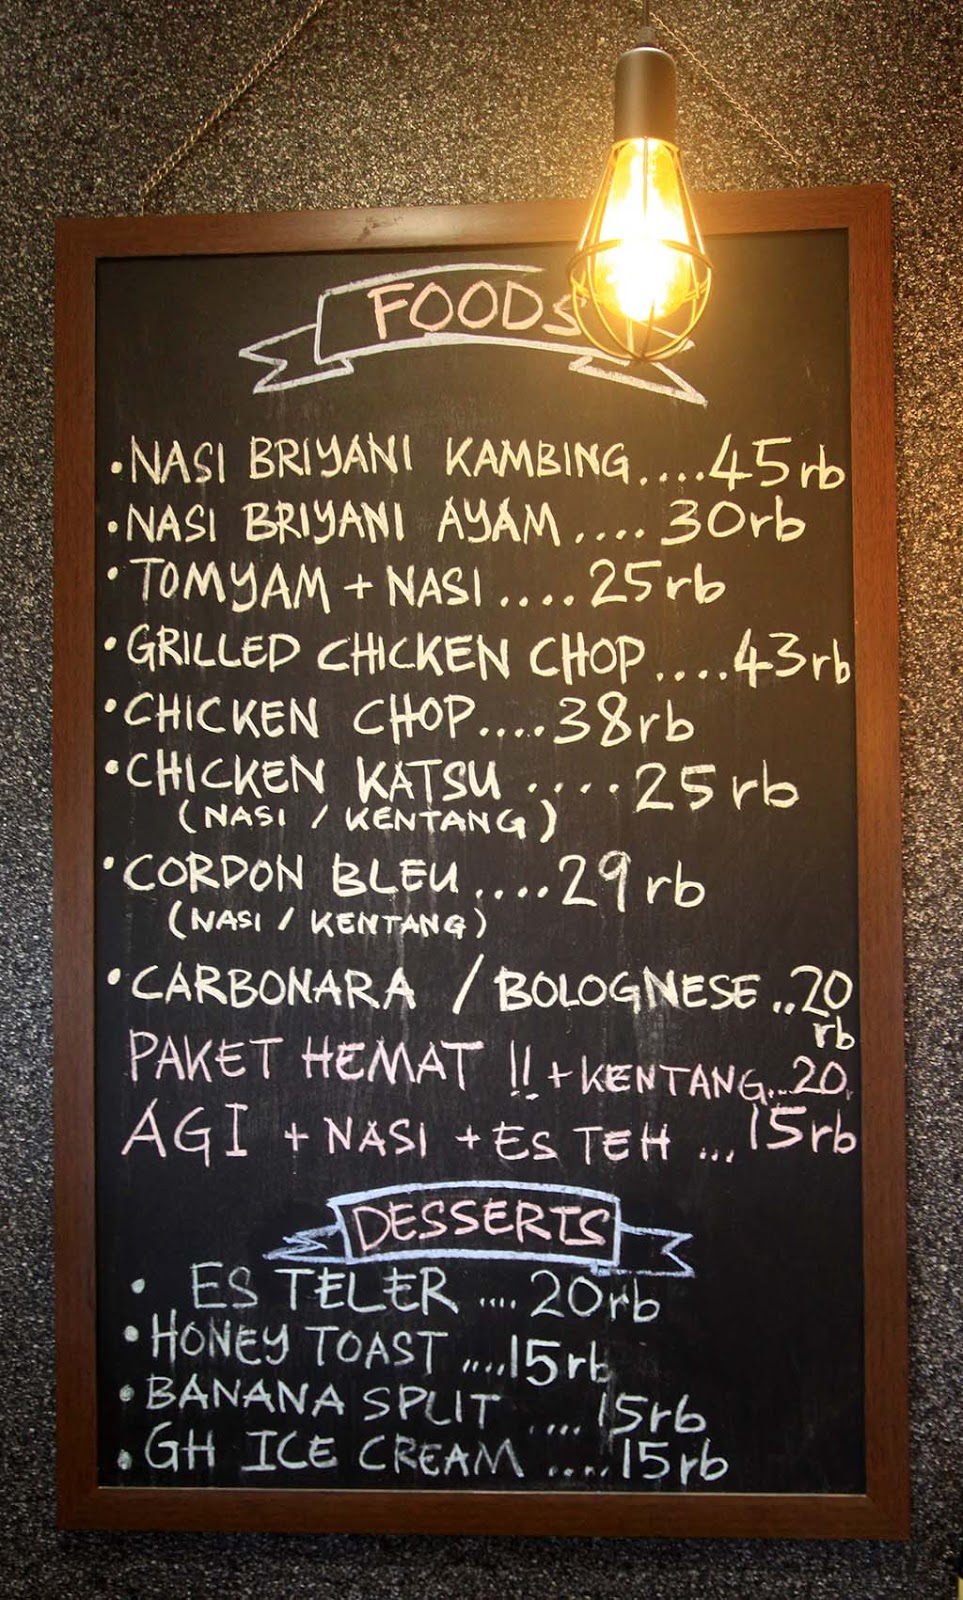 FOODS
• NASI BRIYANI KAMBING....45rb
• NASI BRIYANI AYAM....30rb
• TOMYAM + NASI....25rb
• GRILLED CHICKEN CHOP....43rb
• CHICKEN CHOP....38rb
• CHICKEN KATSU....25rb
(NASI / KENTANG)
• CORDON BLEU....29rb
(NASI / KENTANG)
• CARBONARA / BOLOGNESE..20
rb
PAKET HEMAT !! + KENTANG...20
AGI + NASI + ES TEH...15rb
DESSERTS
• ES TELER....20rb
• HONEY TOAST....15rb
• BANANA SPLIT....15rb
• GH ICE CREAM....15rb